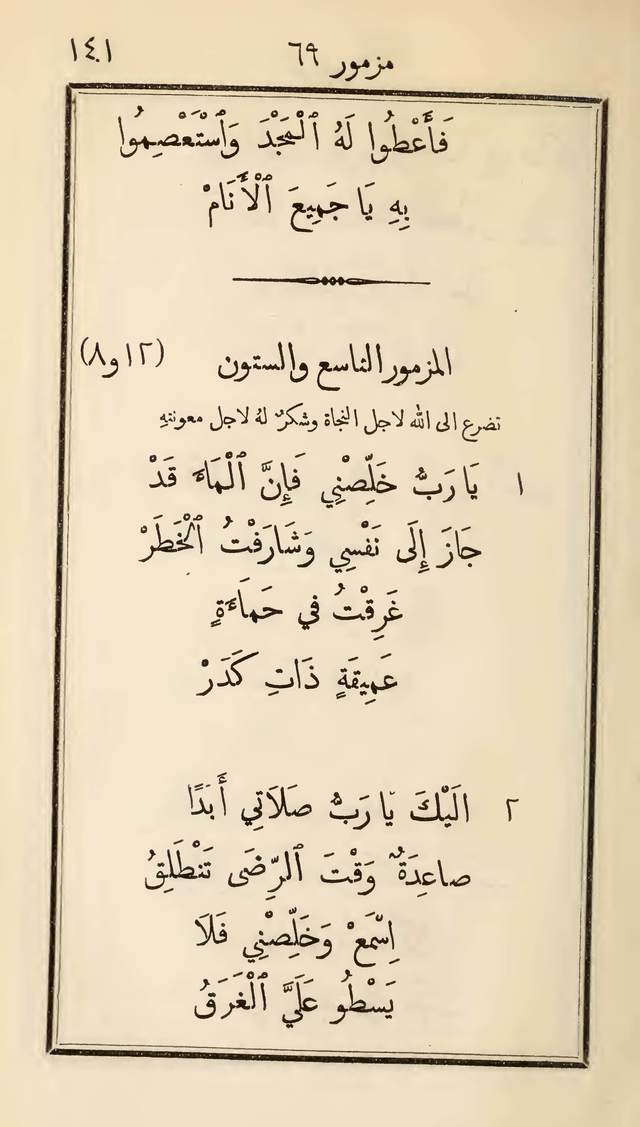 مزمور ٦٩ ١٤١
فَأَعْطُوا لَهُ ٱلْمَجْدَ وَٱسْتَعْصِمُوا
بِهِ يَا جَمِيعَ ٱلْأَنَامْ
المزمور التاسع والستون (١٢ و٨)
تضرع الى الله لاجل النجاة وشكرٌ لهُ لاجل معونتهِ
١ يَا رَبُّ خَلِّصْنِي فَإِنَّ ٱلْمَاءَ قَدْ
جَازَ إِلَى نَفْسِي وَشَارَفْتُ ٱلْخَطَرْ
غَرِقْتُ في حَمَاءَةٍ
عَمِيقَةٍ ذَاتِ كَدَرْ
٢ الَيْكَ يَا رَبُّ صَلَاتِي أَبَدًا
صاعِدَةٌ وَقْتَ ٱلرِّضَى تَنْطَلِقُ
اِسْمَعْ وَخَلِّصْنِي فَلَا
يَسْطُو عَلَيَّ ٱلْغَرَقُ